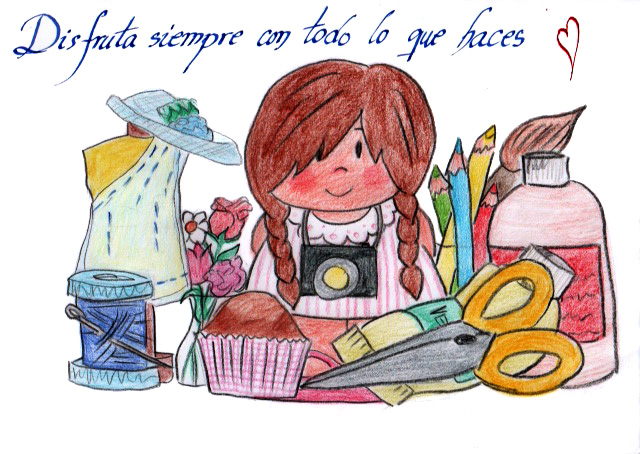 Disfruta siempre con todo lo que haces